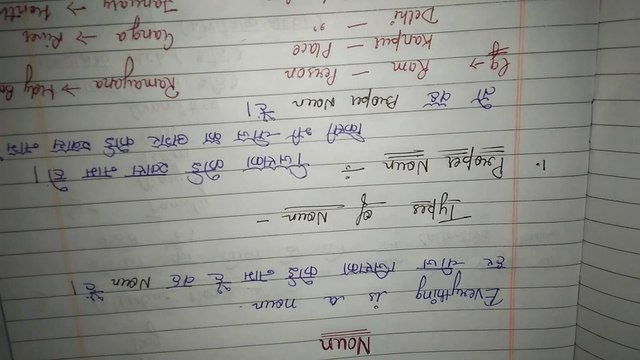 Noun
Everything is a noun.
हर चीज जिसका कोई नाम है वह Noun है।
Types of Noun -
1. Proper Noun ÷ जिसका कोई खास नाम है।
किसी भी चीज का अगर कोई खास नाम
है तो वह Proper Noun है।
Eg → Ram - Person Ramayana → Holy Bo
Kanpur - Place Ganga → River
Delhi - " January → Month